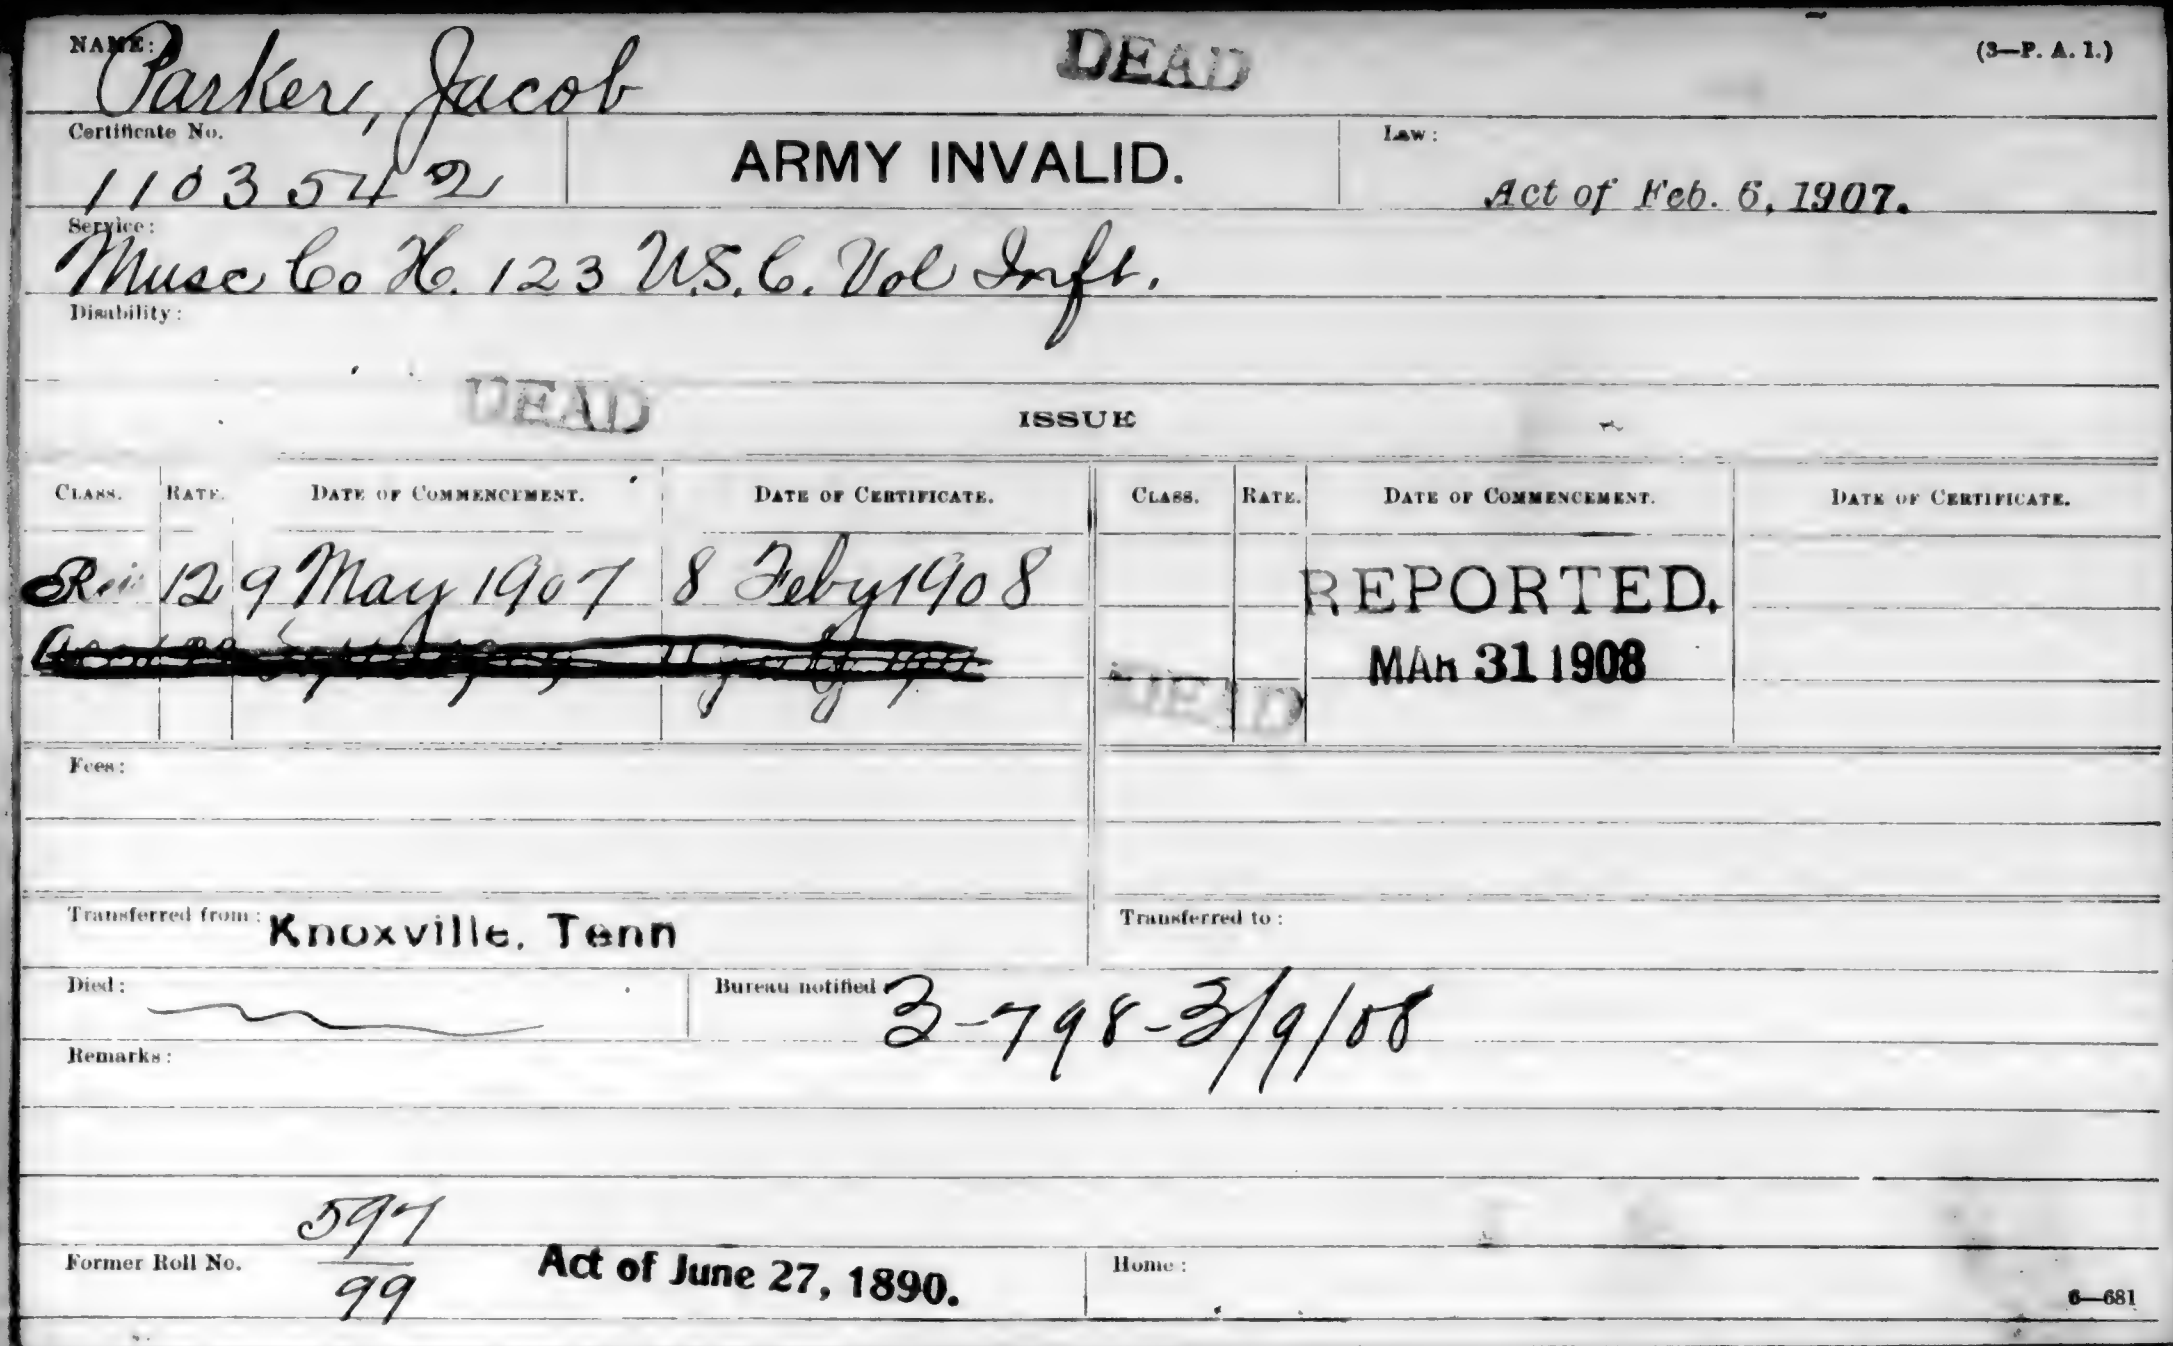 NAME: Parker, Jacob DEAD (3—P. A. I.)
Certificate No. 1103542 ARMY INVALID. Law: Act of Feb. 6, 1907.
Service: Musc Co H. 123 U.S.C. Vol Inft.
Disability:
DEAD
ISSUE
CLASS. RATE. DATE OF COMMENCEMENT. DATE OF CERTIFICATE. CLASS. RATE. DATE OF COMMENCEMENT. DATE OF CERTIFICATE.
Rei 12 9 May 1907 8 Feby 1908 REPORTED.
MAR 31 1908
DEAD
Fees:
Transferred from: Knoxville, Tenn Transferred to:
Died: Bureau notified 3-798-3/9/08
Remarks:
597
Former Roll No. Act of June 27, 1890. Home:
99
6—681